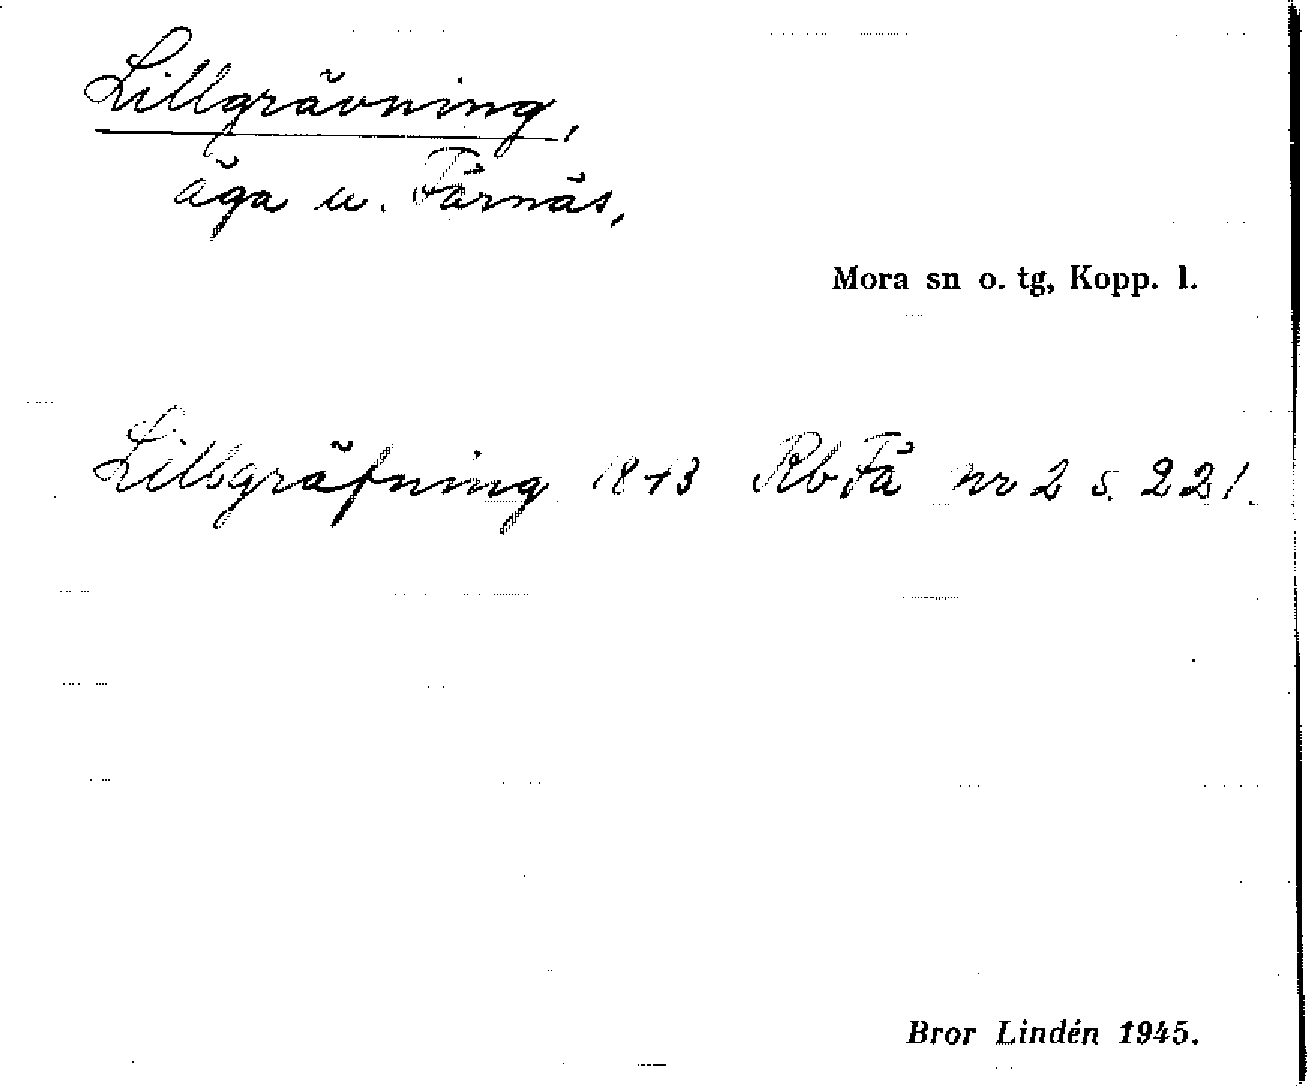 Lillgrävning,
äga u. Färnäs,
Mora sn o. tg, Kopp. l.
Lillsgräfning 1843 Rb Fä nr 2 s. 221.
Bror Lindén 1945.